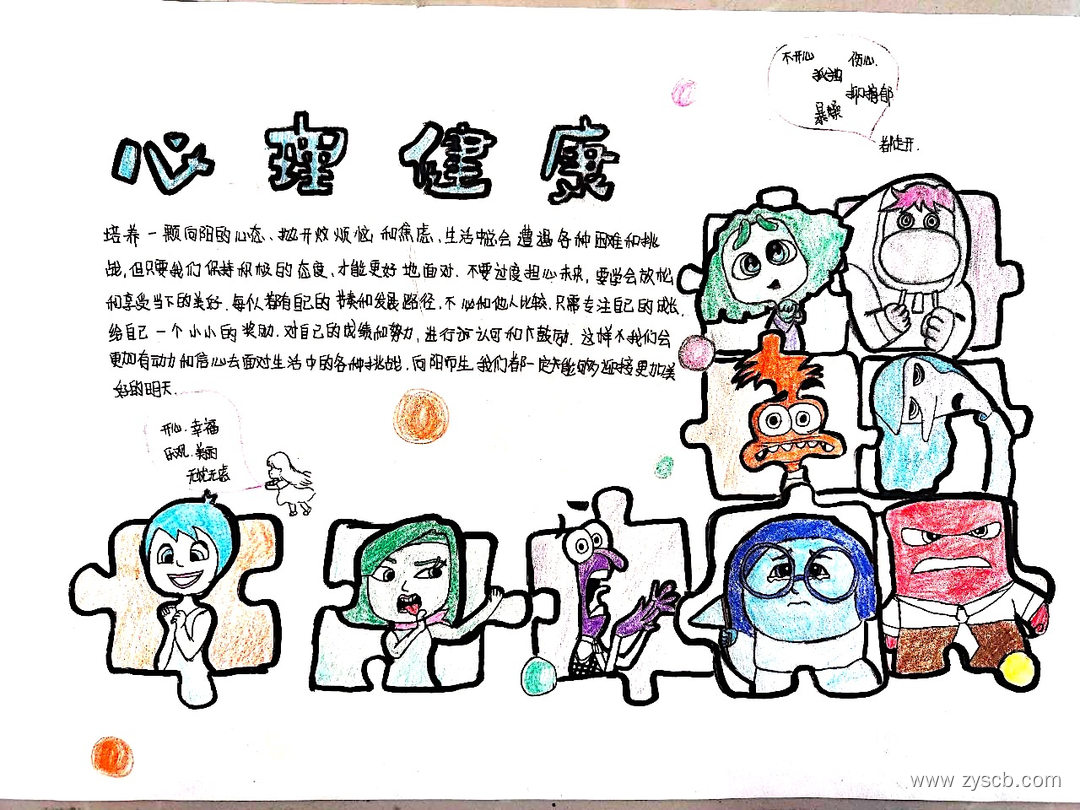 不开心 伤心.
孤独
抑郁
暴燥
都走开.
心理健康
培养一颗向阳的心态、抛开烦恼和焦虑、生活中总会遭遇各种困难和挑
战,但只要我们保持积极的态度、才能更好地面对.不要过度担心未来,要学会放松
和享受当下的美好.每个人都有自己的节奏和发展路径,不必和他人比较.只需专注自己的成长.
给自己一个小小的奖励.对自己的成绩和努力,进行认可和鼓励.这样我们会
更加有动力和信心去面对生活中的各种挑战.向阳而生我们都一定能够迎接更加美
好的明天.
开心.幸福
乐观.美丽
无忧无虑
www.zyscb.com